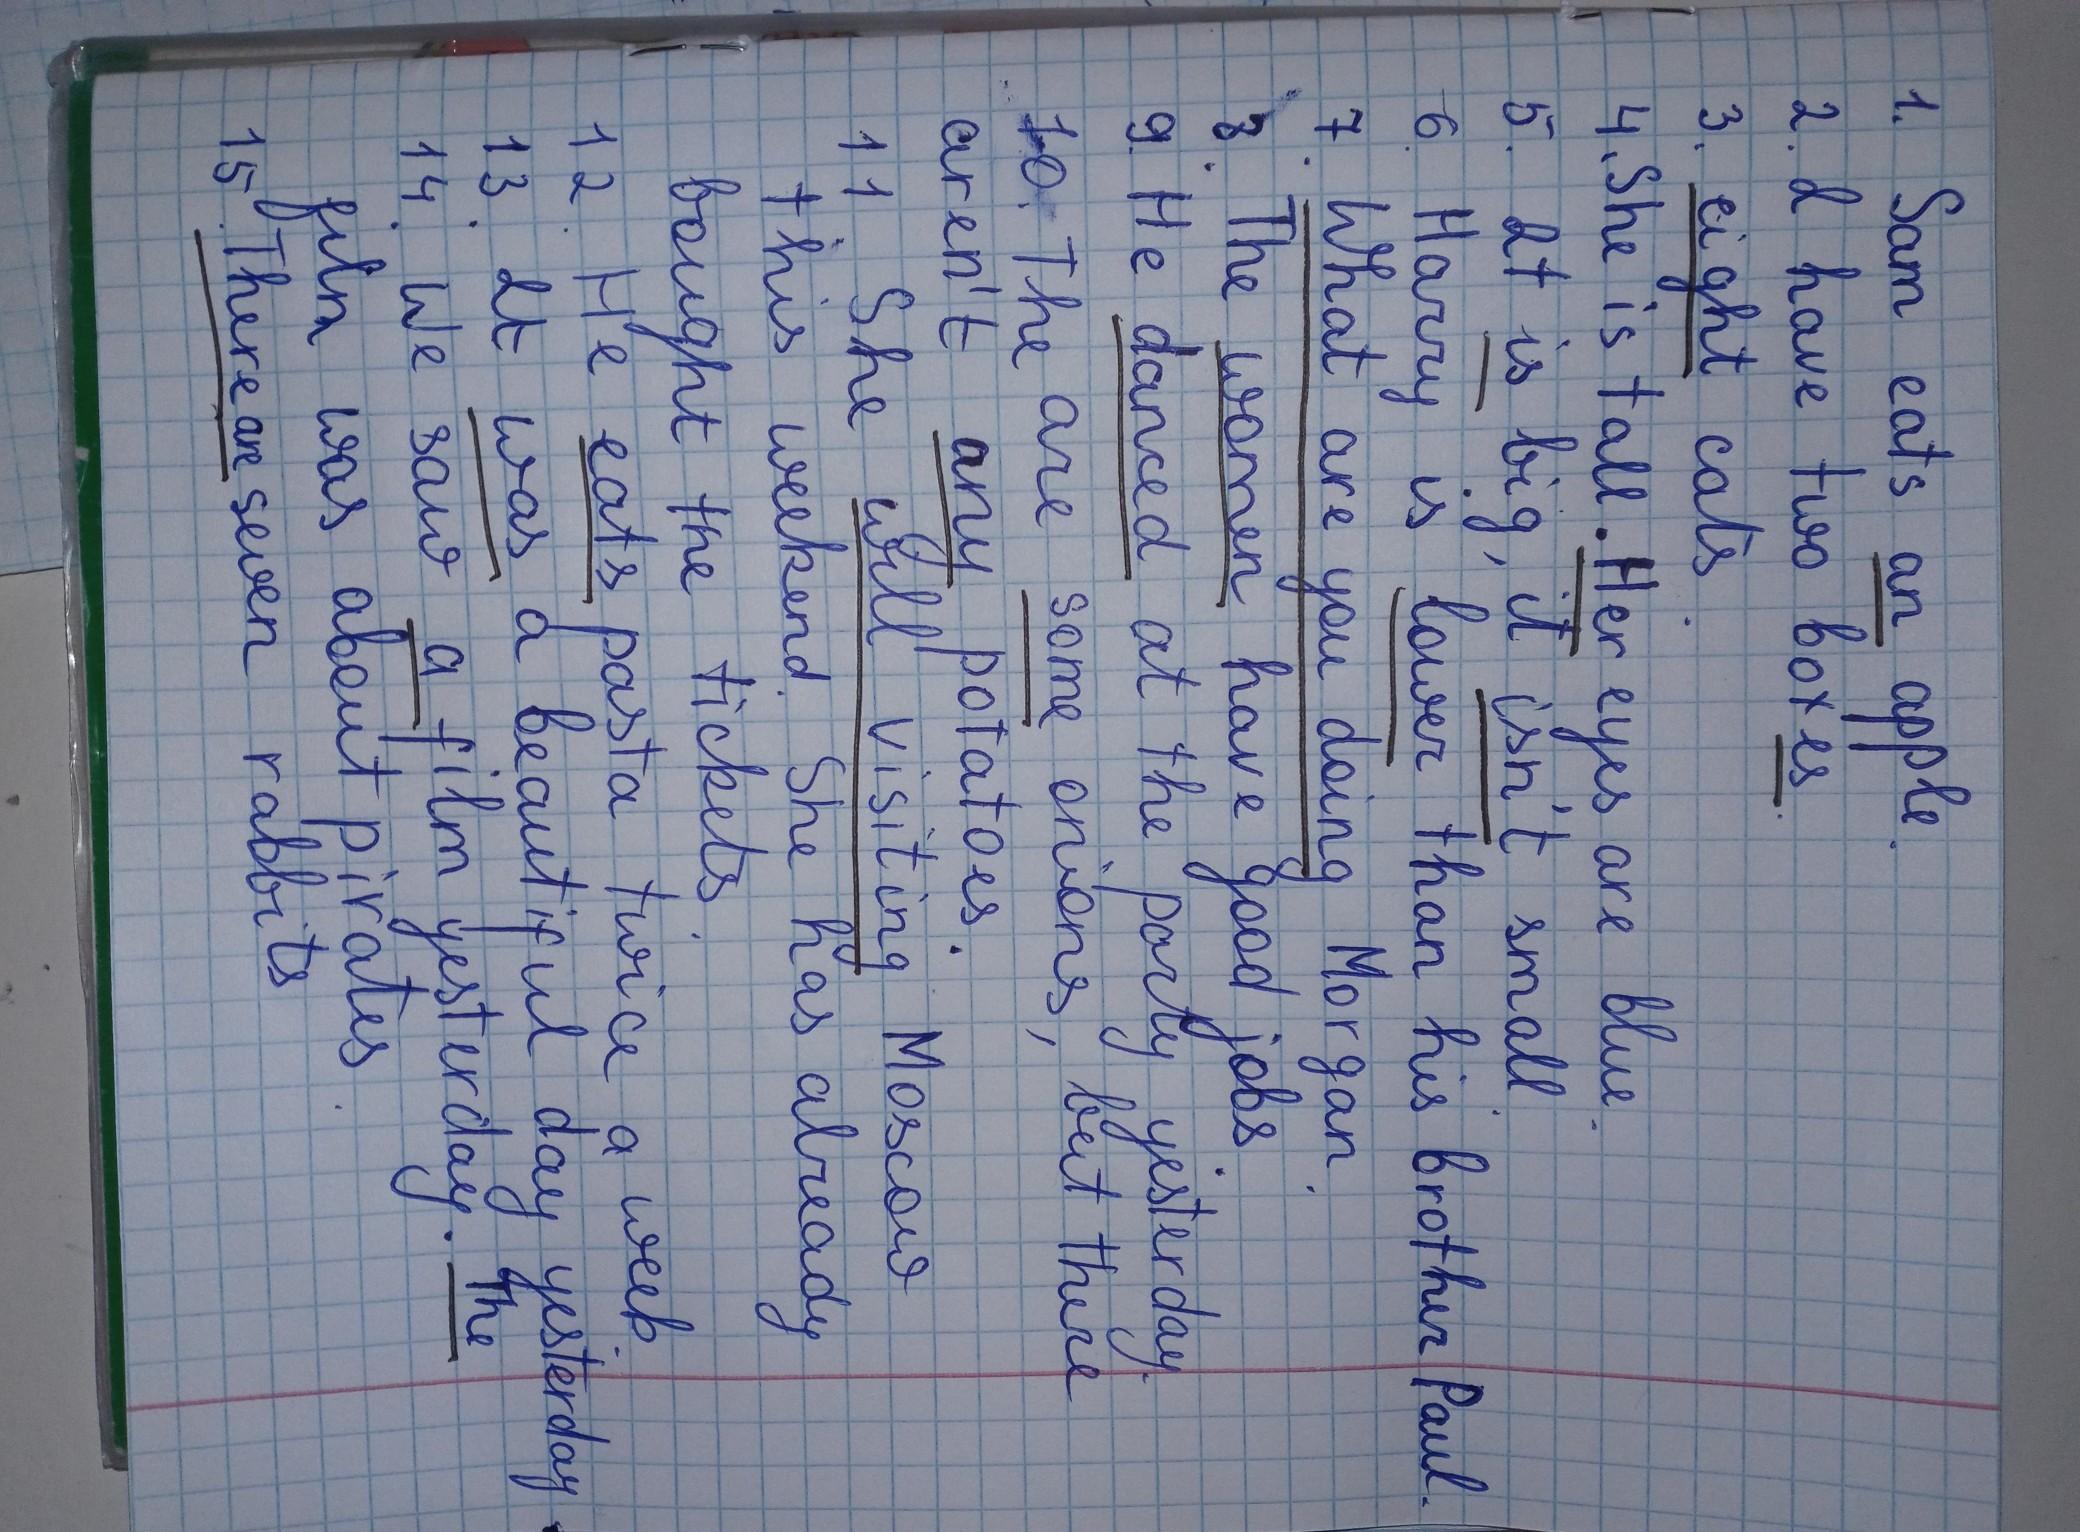 1. Sam eats an apple.
2. I have two boxes.
3. eight cats.
4. She is tall. Her eyes are blue.
5. It is big, it isn't small.
6. Harry is lower than his brother Paul.
7. What are you doing Morgan.
8. The women have good jobs.
9. He danced at the party yesterday.
10. The are some onions, but there
aren't any potatoes.
11 She will visiting Moscow
this weekend. She has already
bought the tickets.
12. He eats pasta twice a week.
13. It was a beautiful day yesterday.
14. We saw a film yesterday. The
film was about pirates.
15. There are seven rabbits